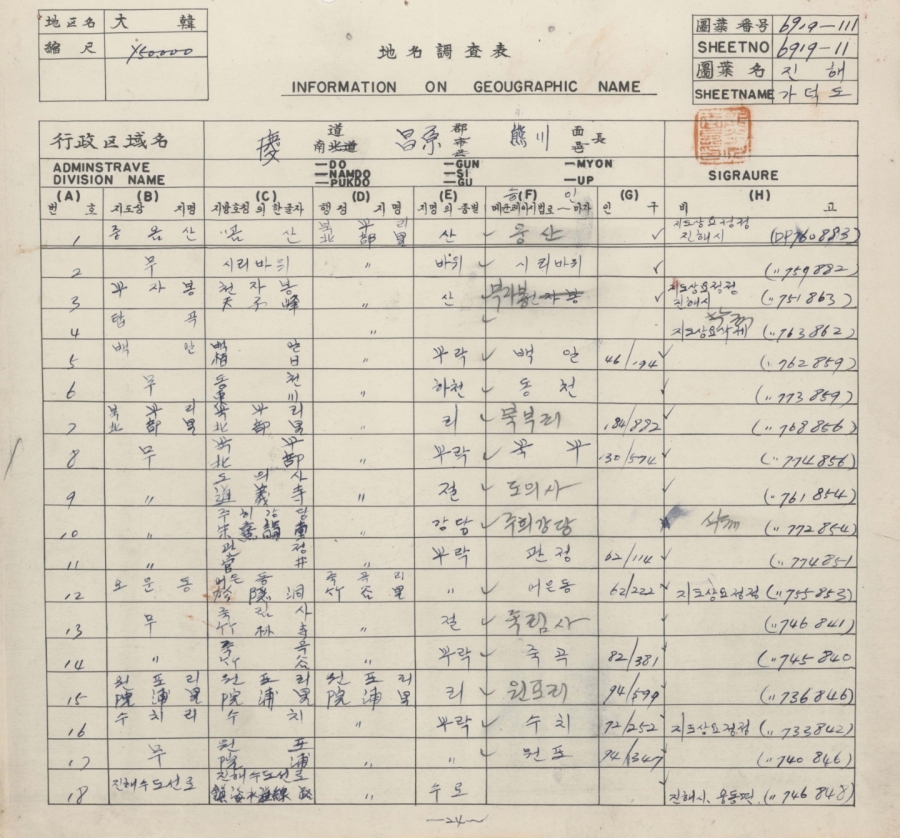 地区名 大 韓
縮 尺 1/50.000
地名調査表
INFORMATION ON GEOUGRAPHIC NAME
圖葉番号 6919-111
SHEETNO 6919-11
圖葉名 진 해
SHEETNAME 가덕도
行政区域名 慶 道 南北道 昌原 郡 市 熊川 面 邑 長
ADMINSTRAVE DIVISION NAME
—DO —GUN —MYON
—NAMDO —SI
—PUKDO —GU —UP
SIGRAURE
(A) (B) (C) (D) (E) (F) (G) (H)
번 호 지도상 지명 지방호칭의 한글자 행정 지명 지명의 종별 인 구 비 고
1 산 북부리 北部里 산 웅산 지도상요정정 진해시 (DP760883)
2 무 시리바위 〃 바위 시리바위 (〃759882)
3 부사봉 천자봉 天子峰 〃 산 지도상요정정 진해시 (〃751863)
4 탑곡 〃 지도상요삭제 (〃763862)
5 백안 백일 〃 부락 백일 46/194 (〃762859)
6 무 동천 東川 〃 하천 동천 (〃773859)
7 북부리 北部里 북부리 北部里 〃 리 북부리 184/882 (〃768856)
8 무 북부 北部 〃 부락 북부 130/574 (〃774856)
9 〃 도의사 道義寺 〃 절 도의사 (〃761854)
10 〃 주희강당 朱熹講堂 〃 강당 주희강당 삭제 (〃772854)
11 〃 관정 官井 〃 부락 관정 62/114 (〃774851
12 오운동 어은동 隱洞 죽곡리 竹谷里 〃 어은동 62/222 지도상요정정 (〃755853)
13 무 죽림사 竹林寺 〃 절 죽림사 (〃746841)
14 〃 죽곡 竹谷 〃 부락 죽곡 82/381 (〃745840
15 원포리 院浦里 원포리 院浦里 원포리 院浦里 리 원포리 94/599 (〃736846)
16 수치리 수치 〃 부락 수치 72/252 지도상요정정 (〃733842)
17 무 원포 院浦 〃 〃 원포 94/347 (〃740846)
18 진해수도선로 진해수도선로 鎮海水道線路 〃 수로 진해시, 웅동면 (〃746848)
—24—